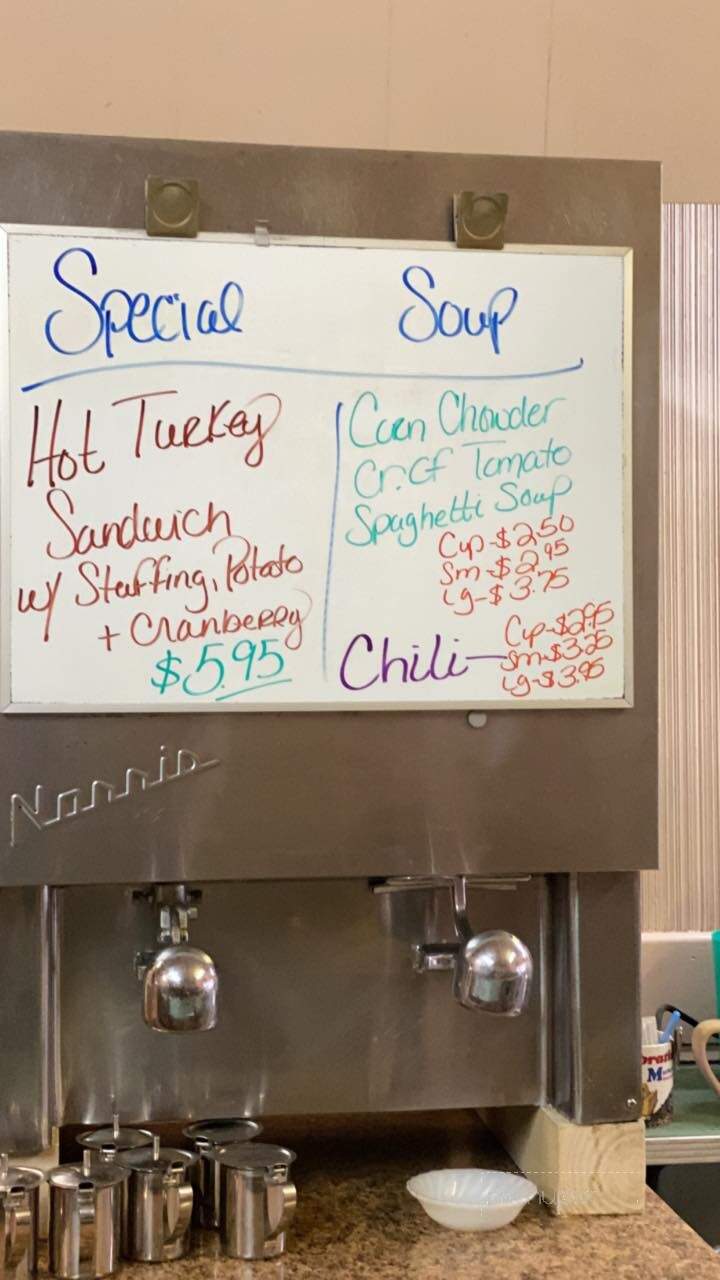 Special
Soup
Hot Turkey
Sandwich
w/ Stuffing, Potato
+ Cranberry
$5.95
Corn Chowder
Cr. Of Tomato
Spaghetti Soup
Cup-$2.50
Sm-$2.95
Lg-$3.75
Chili-
Cup-$2.95
Sm-$3.25
Lg-$3.95
Norris